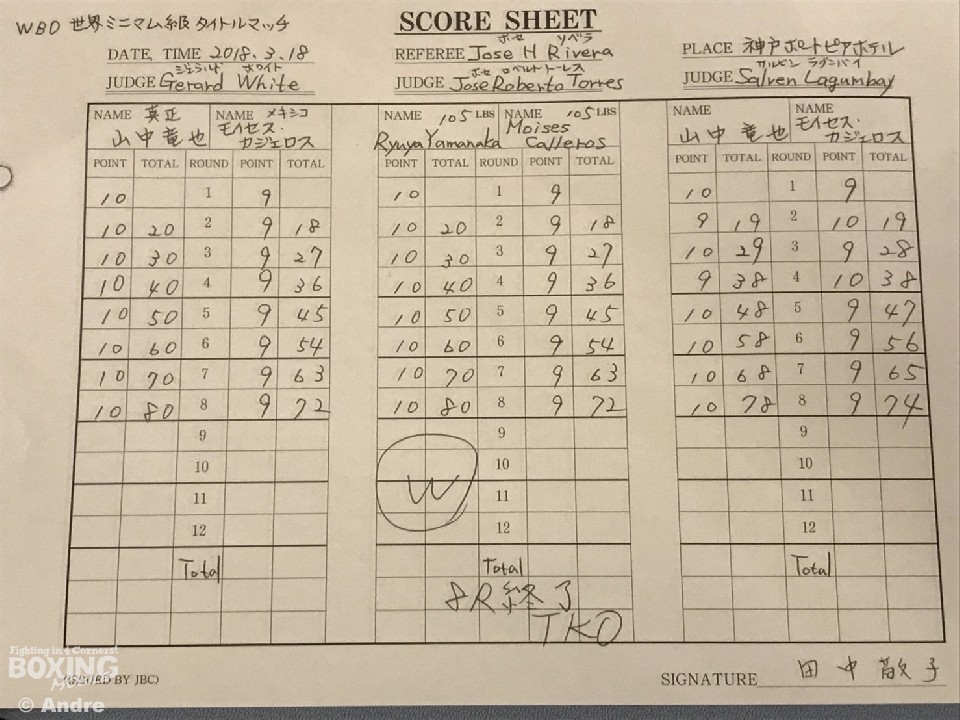 WBO 世界ミニマム級タイトルマッチ
SCORE SHEET
DATE, TIME 2018.3.18
REFEREE Jose H Rivera
ホセ リベラ
PLACE 神戸ポートピアホテル
JUDGE Gerard White
ジェラルド ホワイト
JUDGE Jose Roberto Torres
ホセ ロベルト トーレス
JUDGE Salven Lagumbay
サルベン ラグンバイ
NAME 真正 山中竜也 NAME メキシコ モイセス・カジェロス
NAME 105 LBS Ryuya Yamanaka NAME 105 LBS Moises Calleros
NAME 山中竜也 NAME モイセス・カジェロス
POINT TOTAL ROUND POINT TOTAL POINT TOTAL ROUND POINT TOTAL POINT TOTAL ROUND POINT TOTAL
10 1 9 10 1 9 10 1 9
10 20 2 9 18 10 20 2 9 18 9 19 2 10 19
10 30 3 9 27 10 30 3 9 27 10 29 3 9 28
10 40 4 9 36 10 40 4 9 36 9 38 4 10 38
10 50 5 9 45 10 50 5 9 45 10 48 5 9 47
10 60 6 9 54 10 60 6 9 54 10 58 6 9 56
10 70 7 9 63 10 70 7 9 63 10 68 7 9 65
10 80 8 9 72 10 80 8 9 72 10 78 8 9 74
9 9 9
10 10 10
W
11 11 11
12 12 12
Total Total Total
8R終了
TKO
Fighting in 4 Corners!
BOXING
(ISSUED BY JBC)
SIGNATURE 田中 子
© Andre